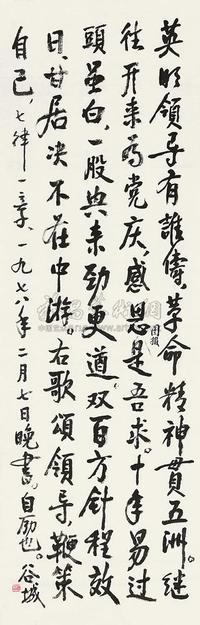 英明領导有誰儔,革命精神貫五洲。继
往开来為党庆,感恩图报是吾求。十年易过
頭虽白,一股兴来劲更遒。双百方针程效
日,甘居决不在中游。右歌頌領导,鞭策
自己,七律一章,一九七八年二月七日晚書,自励也。谷城